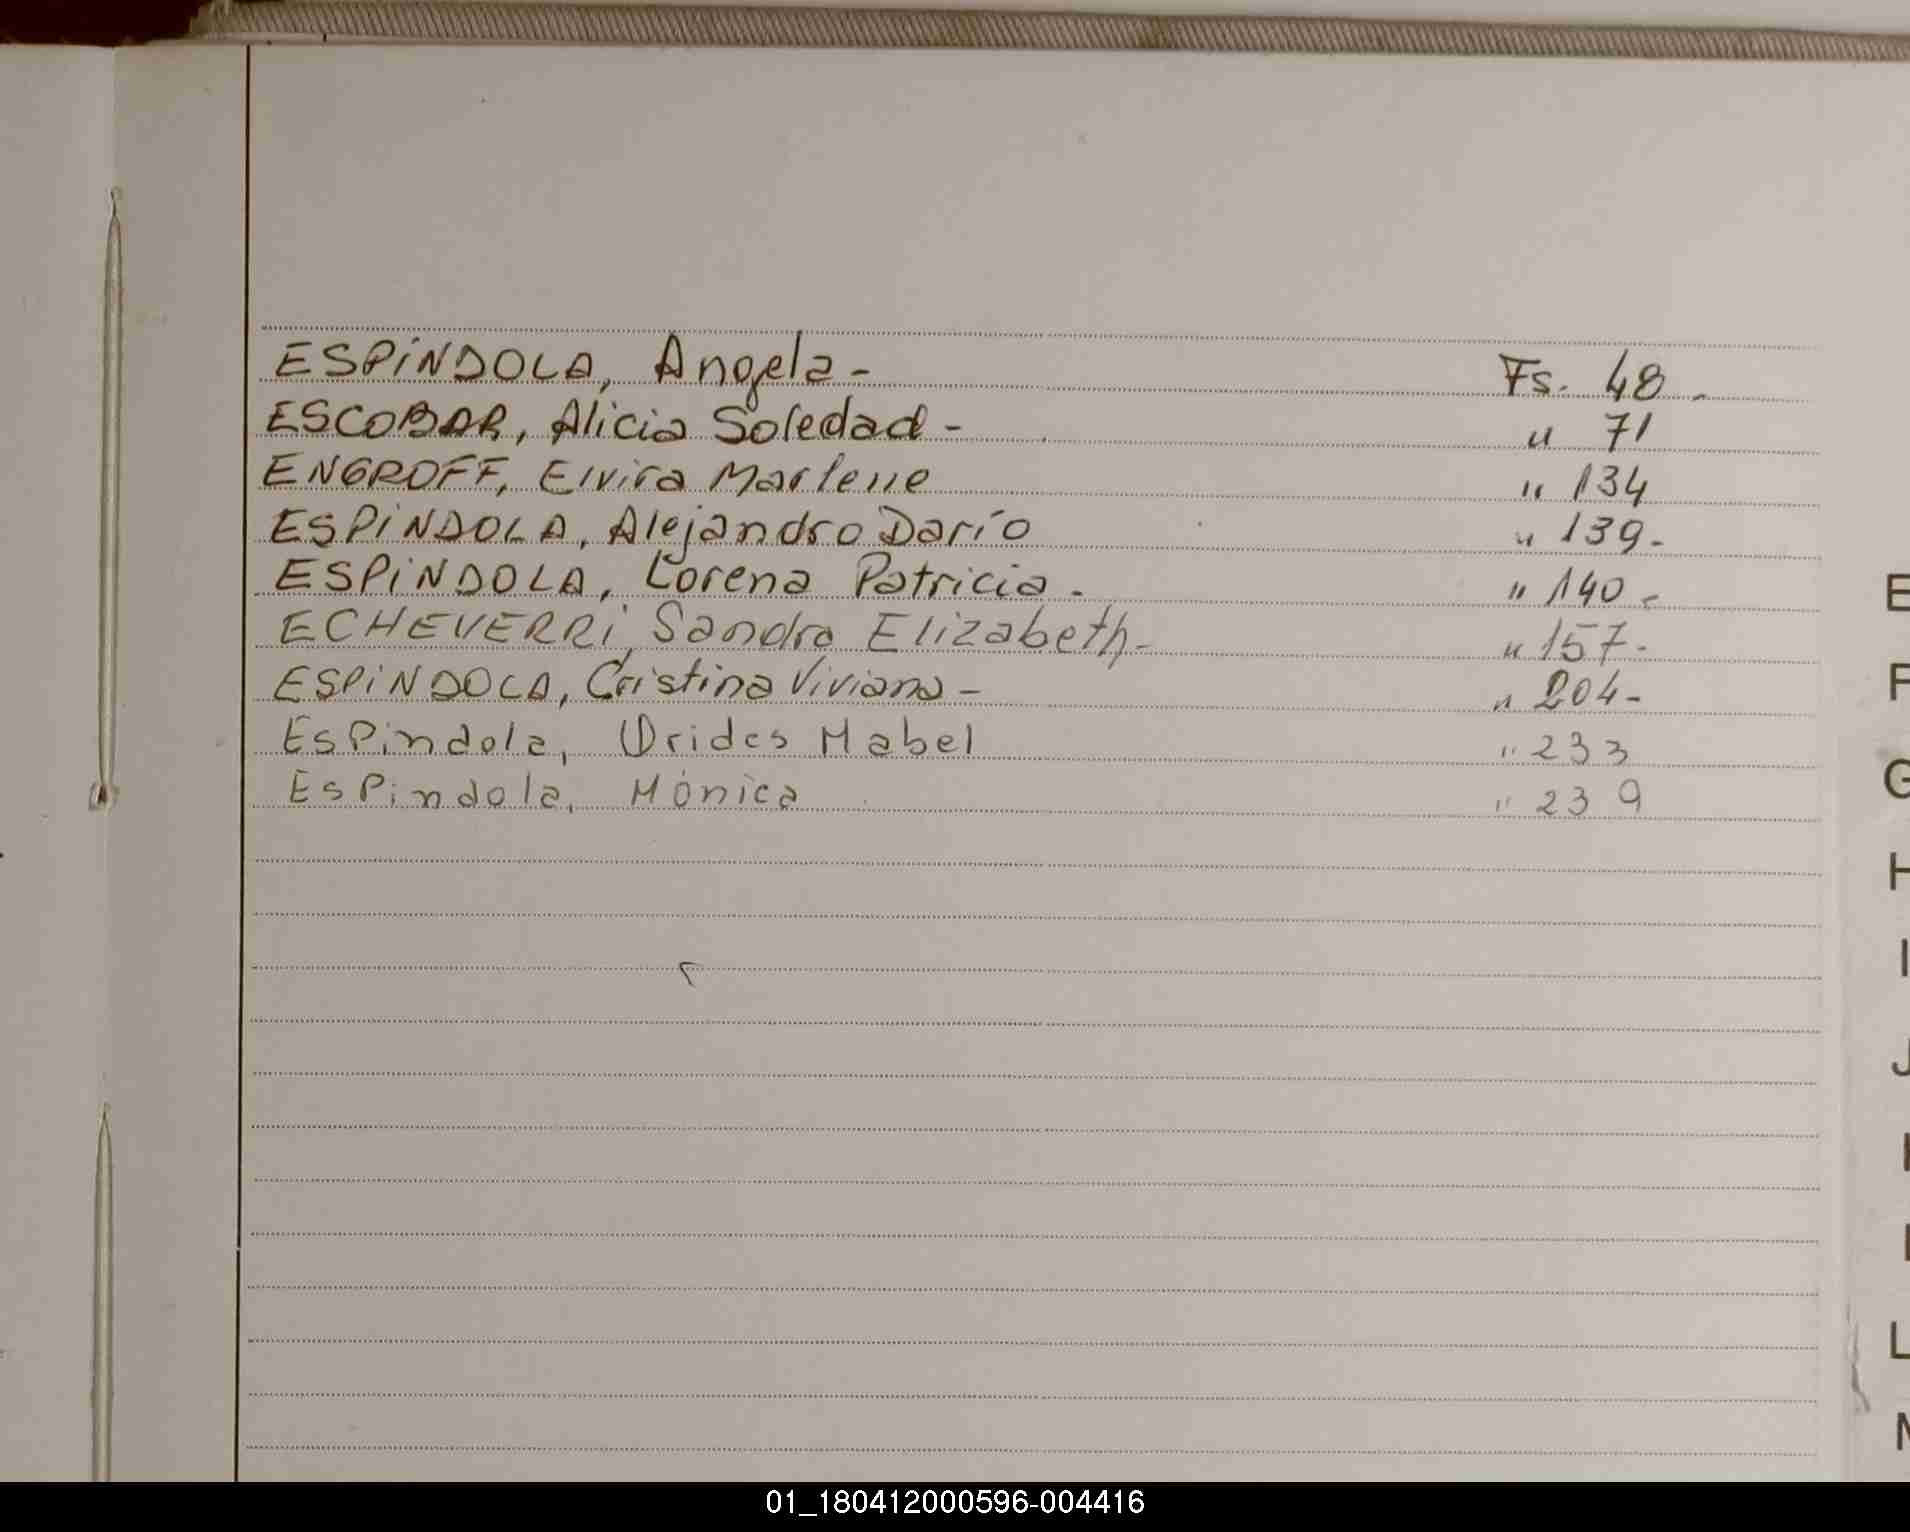 ESPíNDOLA, Angela - Fs. 48 -
ESCOBAR, Alicia Soledad - " 71
ENGROFF, Elvira Marlene " 134
ESPíNDOLA, Alejandro Darío " 139 -
ESPíNDOLA, Lorena Patricia - " 140 -
ECHEVERRi, Sandra Elizabeth - " 157 -
ESPíNDOLA, Cristina Viviana - " 204 -
Espindola, Mabel " 233
Espindola, Mónica " 239
E
F
G
H
I
J
L
M
01_180412000596-004416